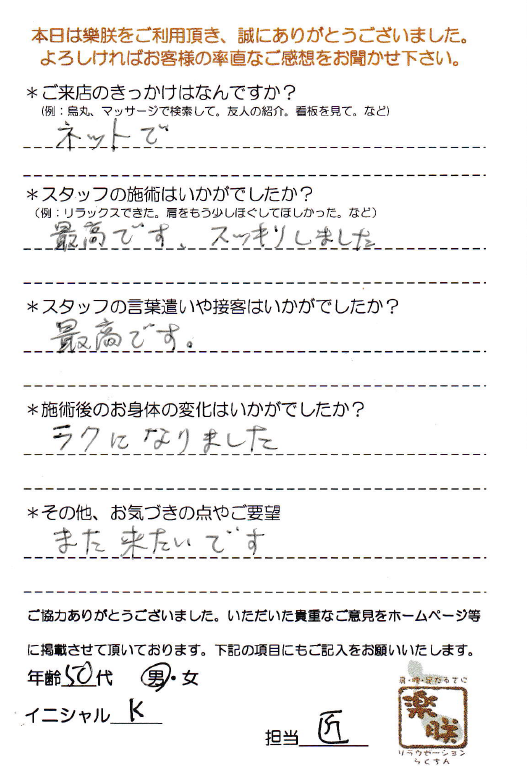 本日は樂朕をご利用頂き、誠にありがとうございました。
よろしければお客様の率直なご感想をお聞かせ下さい。
＊ご来店のきっかけはなんですか？
（例：烏丸、マッサージで検索して。友人の紹介。看板を見て。など）
ネットで
＊スタッフの施術はいかがでしたか？
（例：リラックスできた。肩をもう少しほぐしてほしかった。など）
最高です、スッキリしました
＊スタッフの言葉遣いや接客はいかがでしたか？
最高です。
＊施術後のお身体の変化はいかがでしたか？
ラクになりました
＊その他、お気づきの点やご要望
また来たいです
ご協力ありがとうございました。いただいた貴重なご意見をホームページ等
に掲載させて頂いております。下記の項目にもご記入をお願いいたします。
年齢50代 男・女
イニシャル K
担当 匠
樂朕
リラクゼーション
らくちん